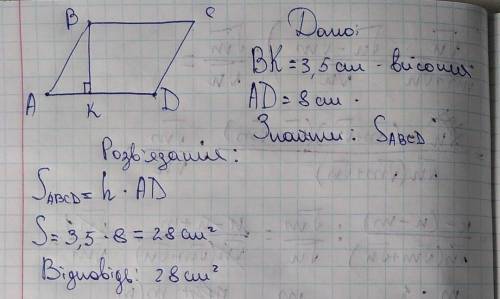 B C
A K D
Дано:
BK = 3,5 см - висота
AD = 8 см.
Знайти: S_ABCD
Розв'язання:
S_ABCD = h · AD
S = 3,5 · 8 = 28 см²
Відповідь: 28 см²